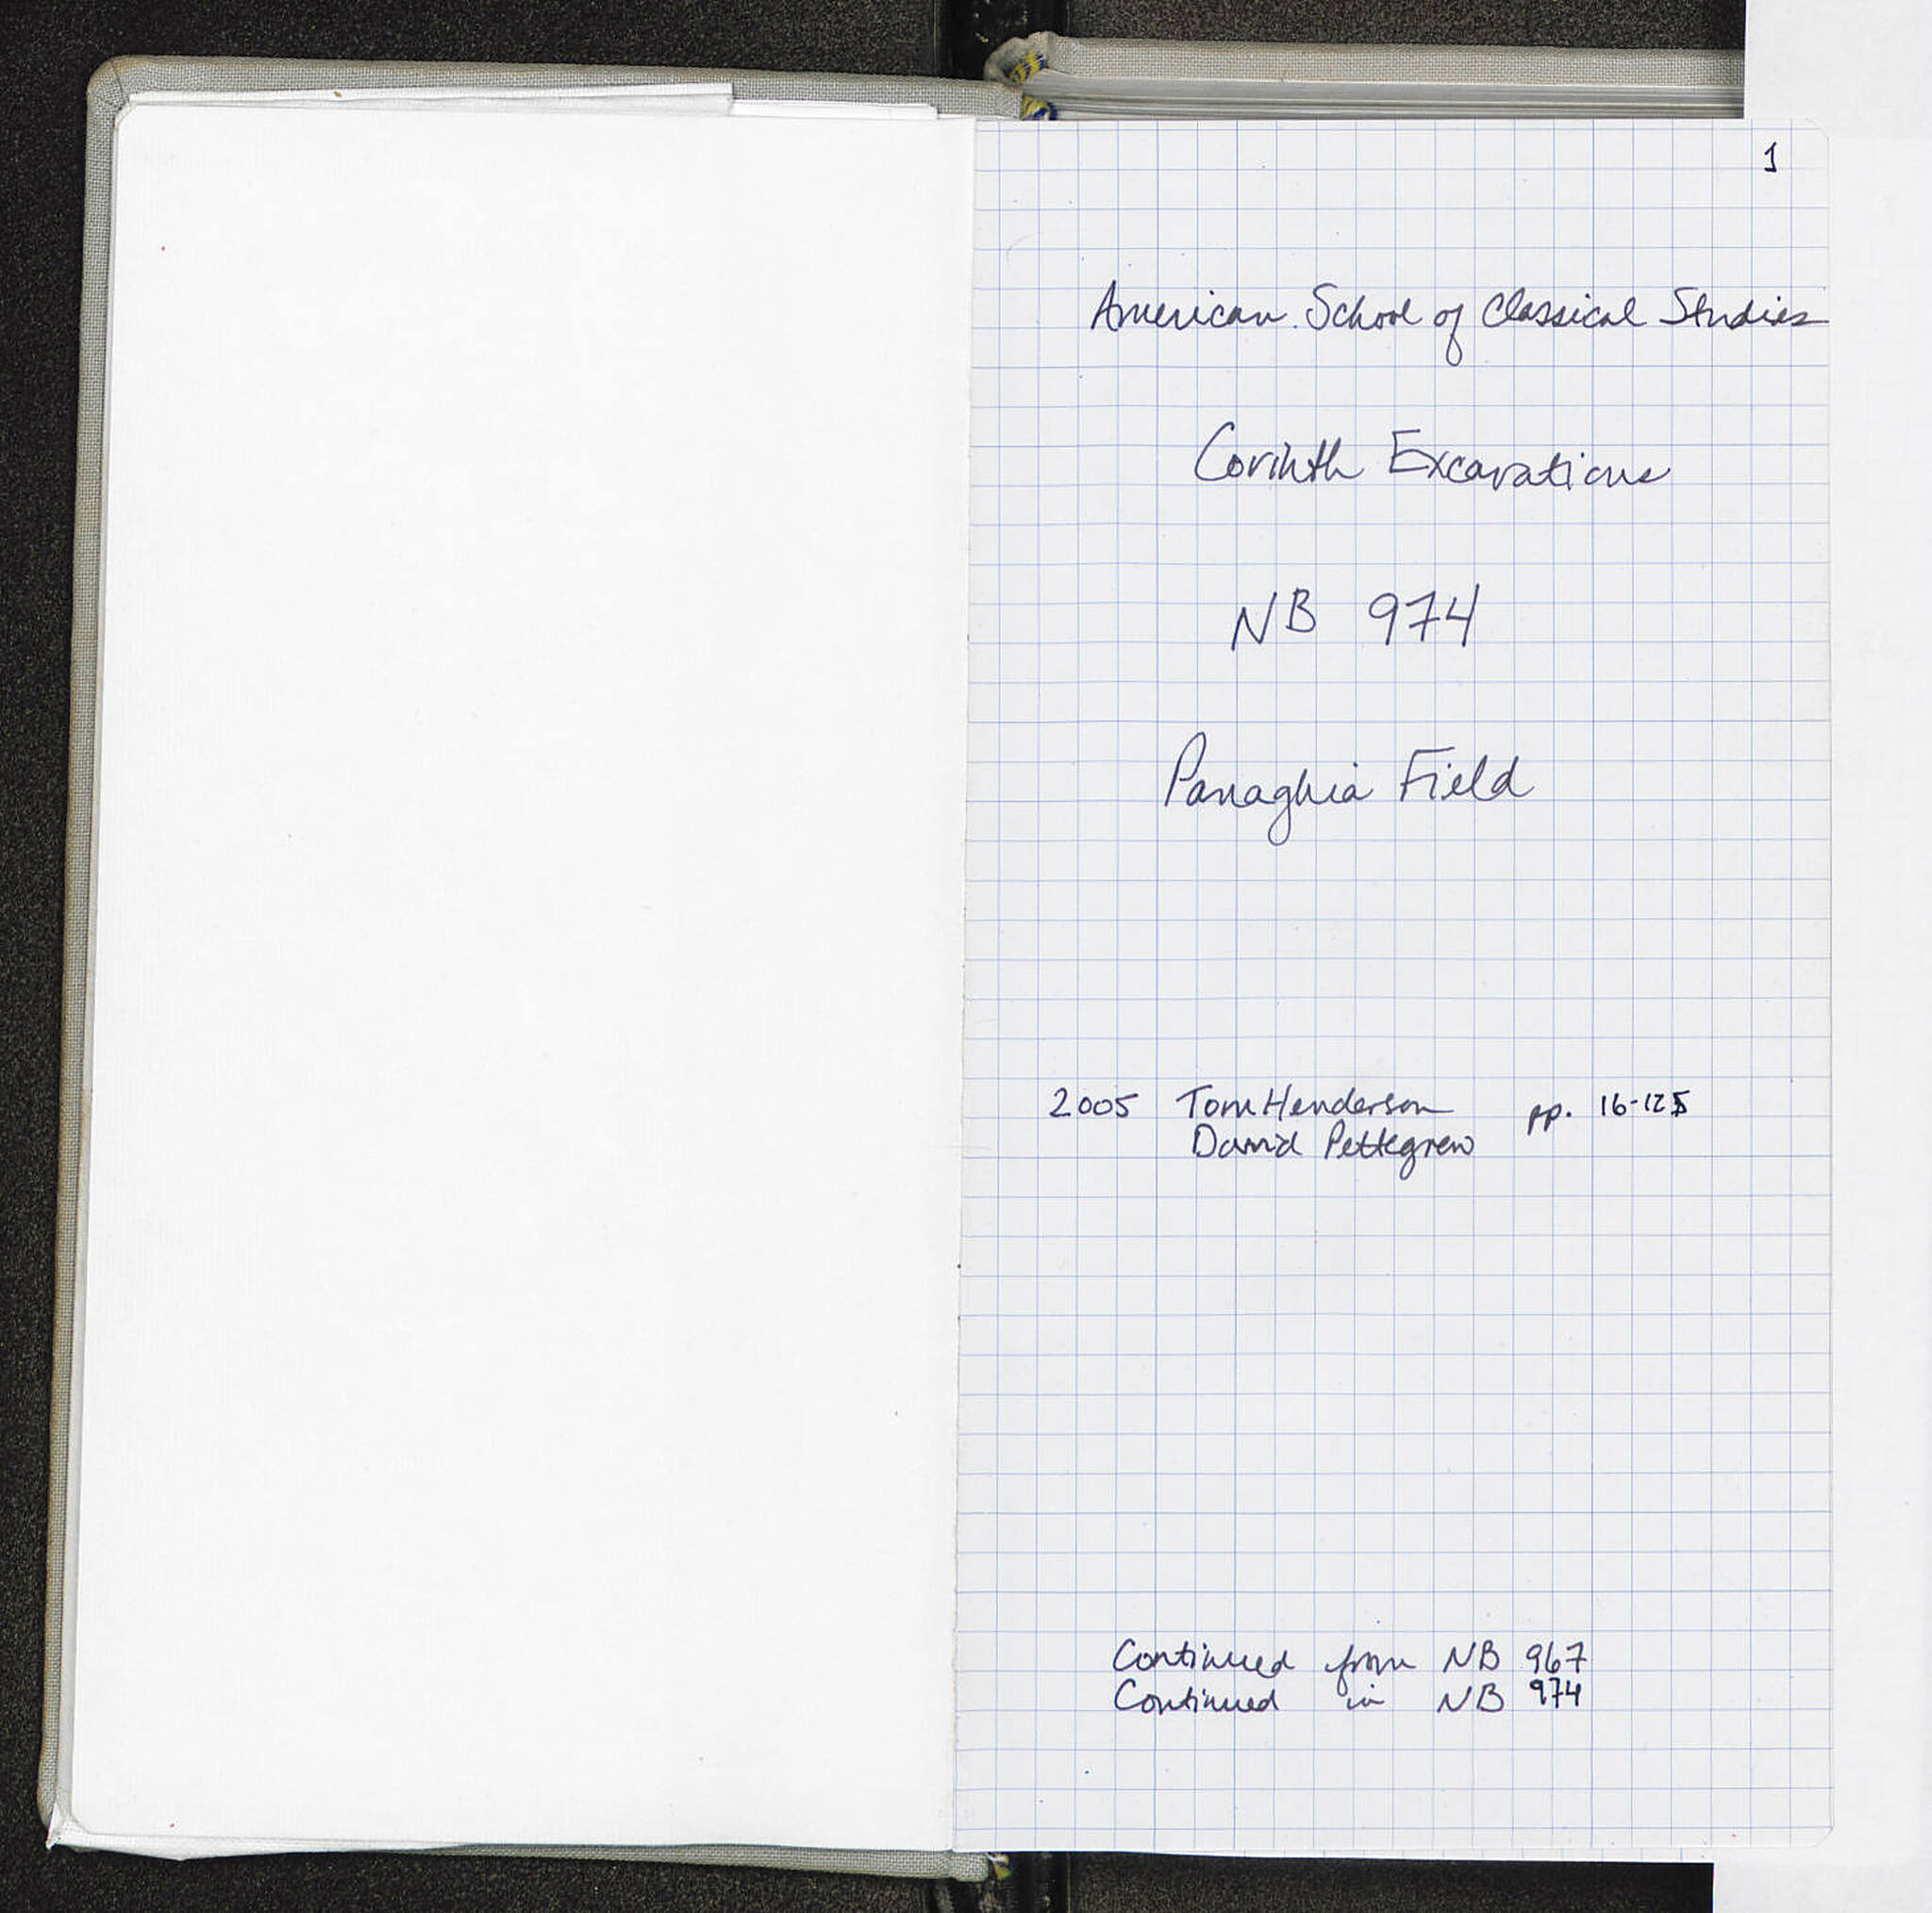 1
American School of Classical Studies
Corinth Excavations
NB 974
Panaghia Field
2005 Tom Henderson pp. 16-125
David Pettegrew
Continued from NB 967
Continued in NB 974